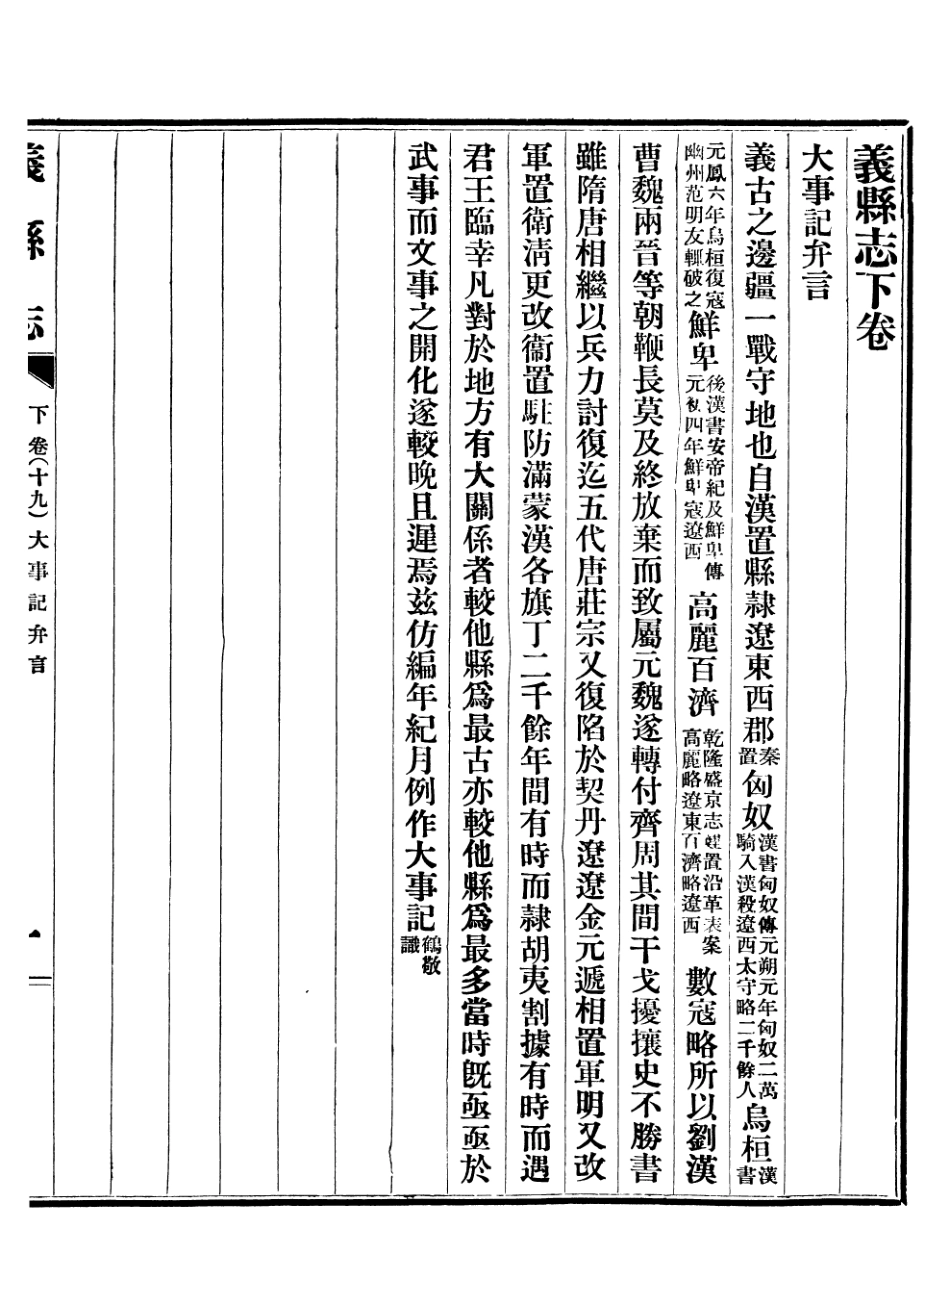 義縣志下卷
大事記弁言
義古之邊疆一戰守地也自漢置縣隸遼東西郡秦置匈奴漢書匈奴傳元朔元年匈奴二萬騎入漢殺遼西太守略二千餘人烏桓漢書
元鳳六年烏桓復寇幽州范明友輒破之鮮卑後漢書安帝紀及鮮卑傳元初四年鮮卑寇遼西高麗百濟乾隆盛京志建置沿革表案高麗略遼東百濟略遼西數寇略所以劉漢
曹魏兩晉等朝鞭長莫及終放棄而致屬元魏遂轉付齊周其間干戈擾攘史不勝書
雖隋唐相繼以兵力討復迄五代唐莊宗又復陷於契丹遼遼金元遞相置軍明又改
軍置衛淸更改衞置駐防滿蒙漢各旗丁二千餘年間有時而隸胡夷割據有時而遇
君王臨幸凡對於地方有大關係者較他縣爲最古亦較他縣爲最多當時旣亟亟於
武事而文事之開化遂較晚且遲焉兹仿編年紀月例作大事記鶴敬識
義縣志
下卷(十九)大事記弁言
一